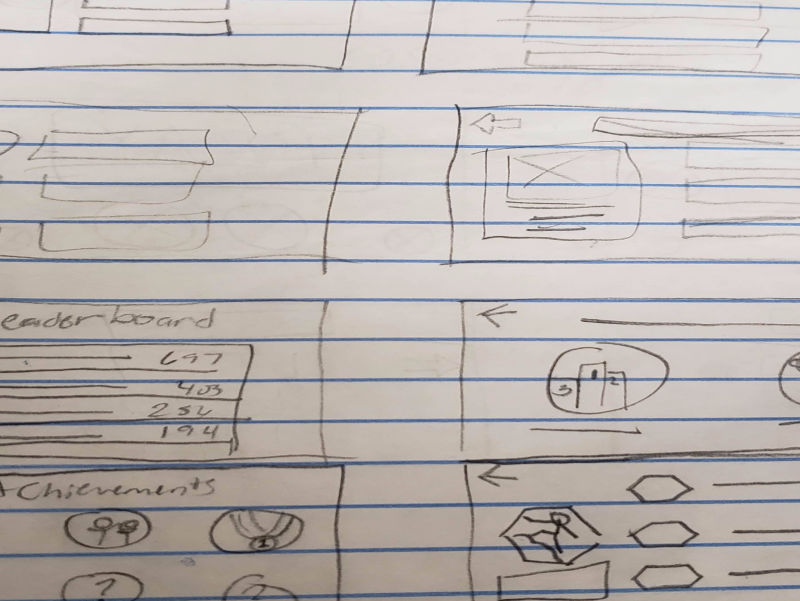 eaderboard
697
403
232
194
3 1 2
Achievements
1
? ?